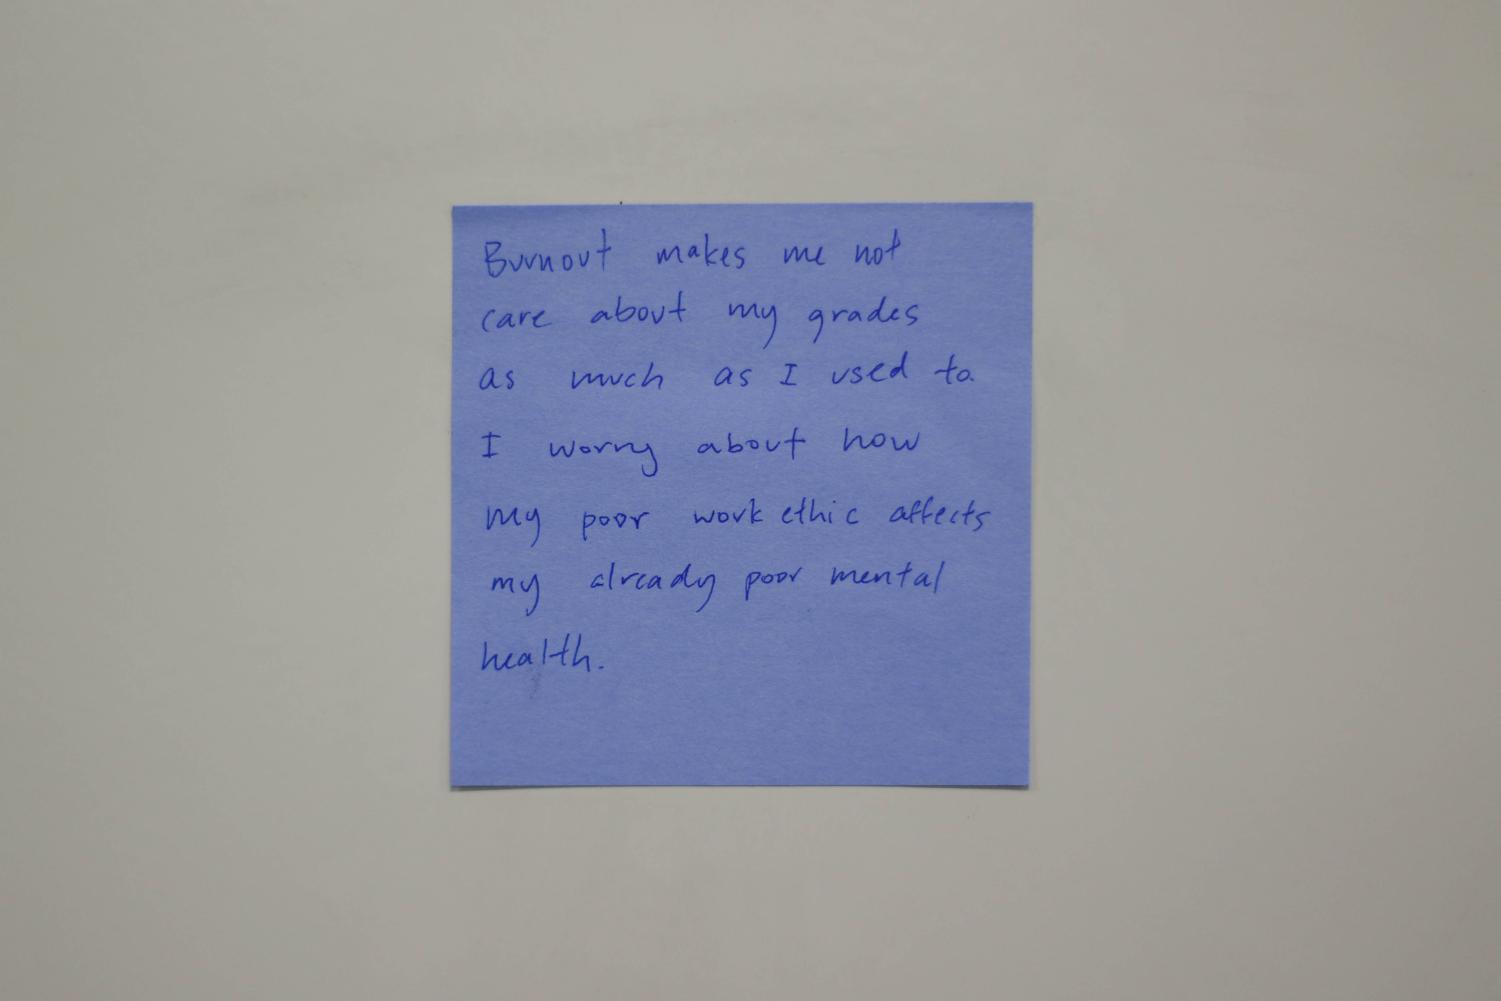 Burnout makes me not
care about my grades
as much as I used to.
I worry about how
my poor work ethic affects
my already poor mental
health.